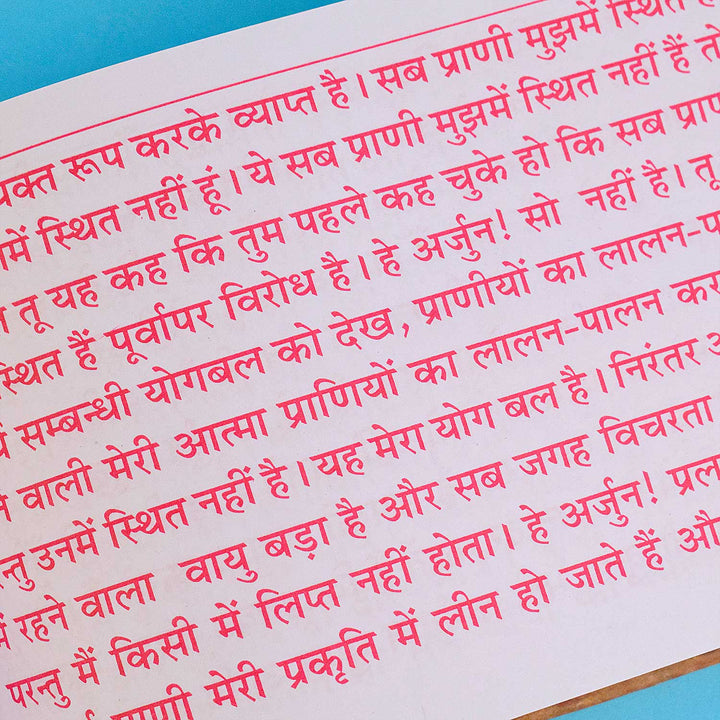 रूप करके व्याप्त है। सब प्राणी मुझमें स्थित
स्थित नहीं हूं। ये सब प्राणी मुझमें स्थित नहीं हैं तो
तू यह कह कि तुम पहले कह चुके हो कि सब
हैं पूर्वापर विरोध है। हे अर्जुन! सो नहीं है। तू
सम्बन्धी योगबल को देख, प्राणीयों का लालन-
वाली मेरी आत्मा प्राणियों का लालन-पालन
उनमें स्थित नहीं है। यह मेरा योग बल है। निरंतर
रहने वाला वायु बड़ा है और सब जगह विचरता
परन्तु मैं किसी में लिप्त नहीं होता। हे अर्जुन!
मेरी प्रकृति में लीन हो जाते हैं